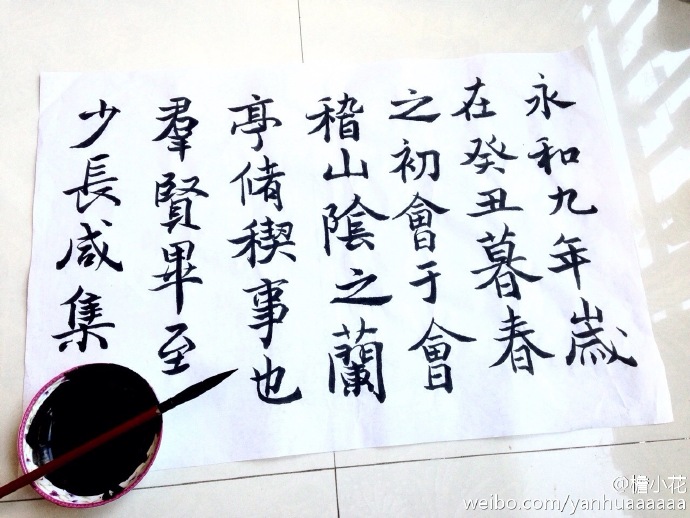 永和九年歲
在癸丑暮春
之初會于會
稽山陰之蘭
亭脩稧事也
羣賢畢至
少長咸集
@檐小花
weibo.com/yanhuaaaaaa